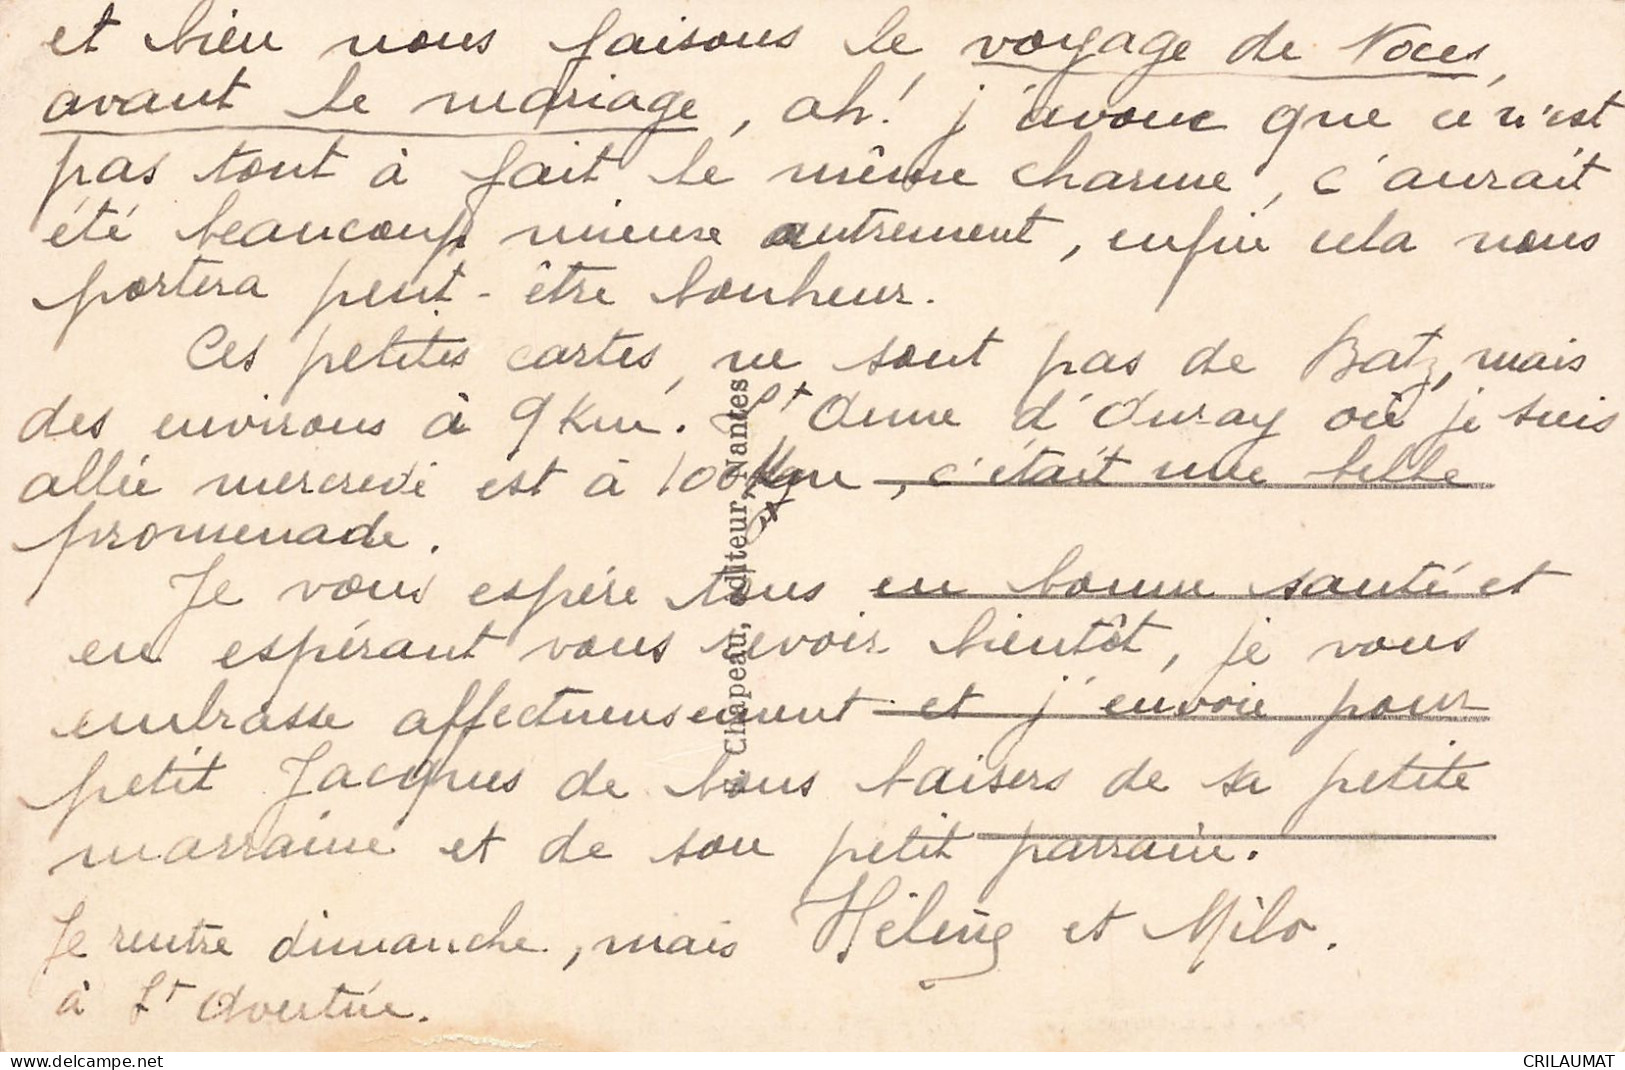 et bien nous faisons le voyage de Noces,
avant le mariage, ah! j'avoue que ce n'est
pas tout à fait le même charme, c'aurait
été beaucoup mieux autrement, enfin cela nous
portera peut-être bonheur.
Ces petites cartes, ne sont pas de Batz, mais
des environs à 9 Km. St Anne d'Auray où je suis
allée mercredi est à 100 Km, c'était une belle
promenade.
Je vous espère tous en bonne santé et
en espérant vous revoir bientôt, je vous
embrasse affectueusement et j'envoie pour
petit Jacques de bons baisers de sa petite
marraine et de son petit parrain.
Hélène et Milo.
Je rentre dimanche, mais
à St Avertin.
Chapeau, éditeur, Nantes
www.delcampe.net
CRILAUMAT